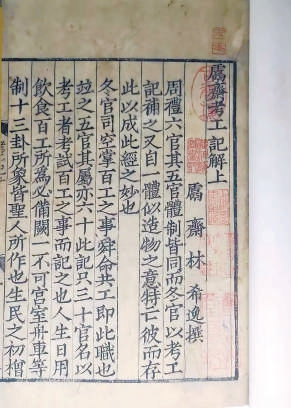 鬳齋考工記解上
鬳齋林希逸撰
周禮六官其五官體制皆同而冬官以考工
記補之又自一體似造物之意特亡彼而存
此以成此經之妙也
冬官司空掌百工之事舜命共工即此職也
竝之五官其屬亦六十此記只三十官名以
考工者考試百工之事而記之也人生日用
飲食百工所為必備闕一不可宮室舟車等
制十三卦所象皆聖人所作也生民之初橧